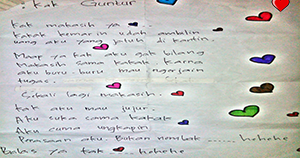 : Kak Guntur
Kak makasih ya
kakak kemarin udah ambilin
uang aku yang jatuh di kantin.
Maap ya kak aku gak bilang
makasih sama kakak. karna
aku buru-buru mau ngerjain
tugas.
Sikali lagi makasih.
kak aku mau jujur.
Aku suka sama kakak
Aku cuma ungkapin
Perasaan aku. Bukan nembak ...... hehehe
Balas ya kak hehehe